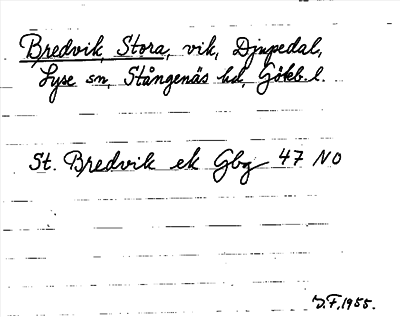 Bredvik, Stora, vik, Djupedal,
Lyse sn, Stångenäs hd, Gökb. l.
St. Bredvik ek Gbg 47 NO
J.F. 1955.